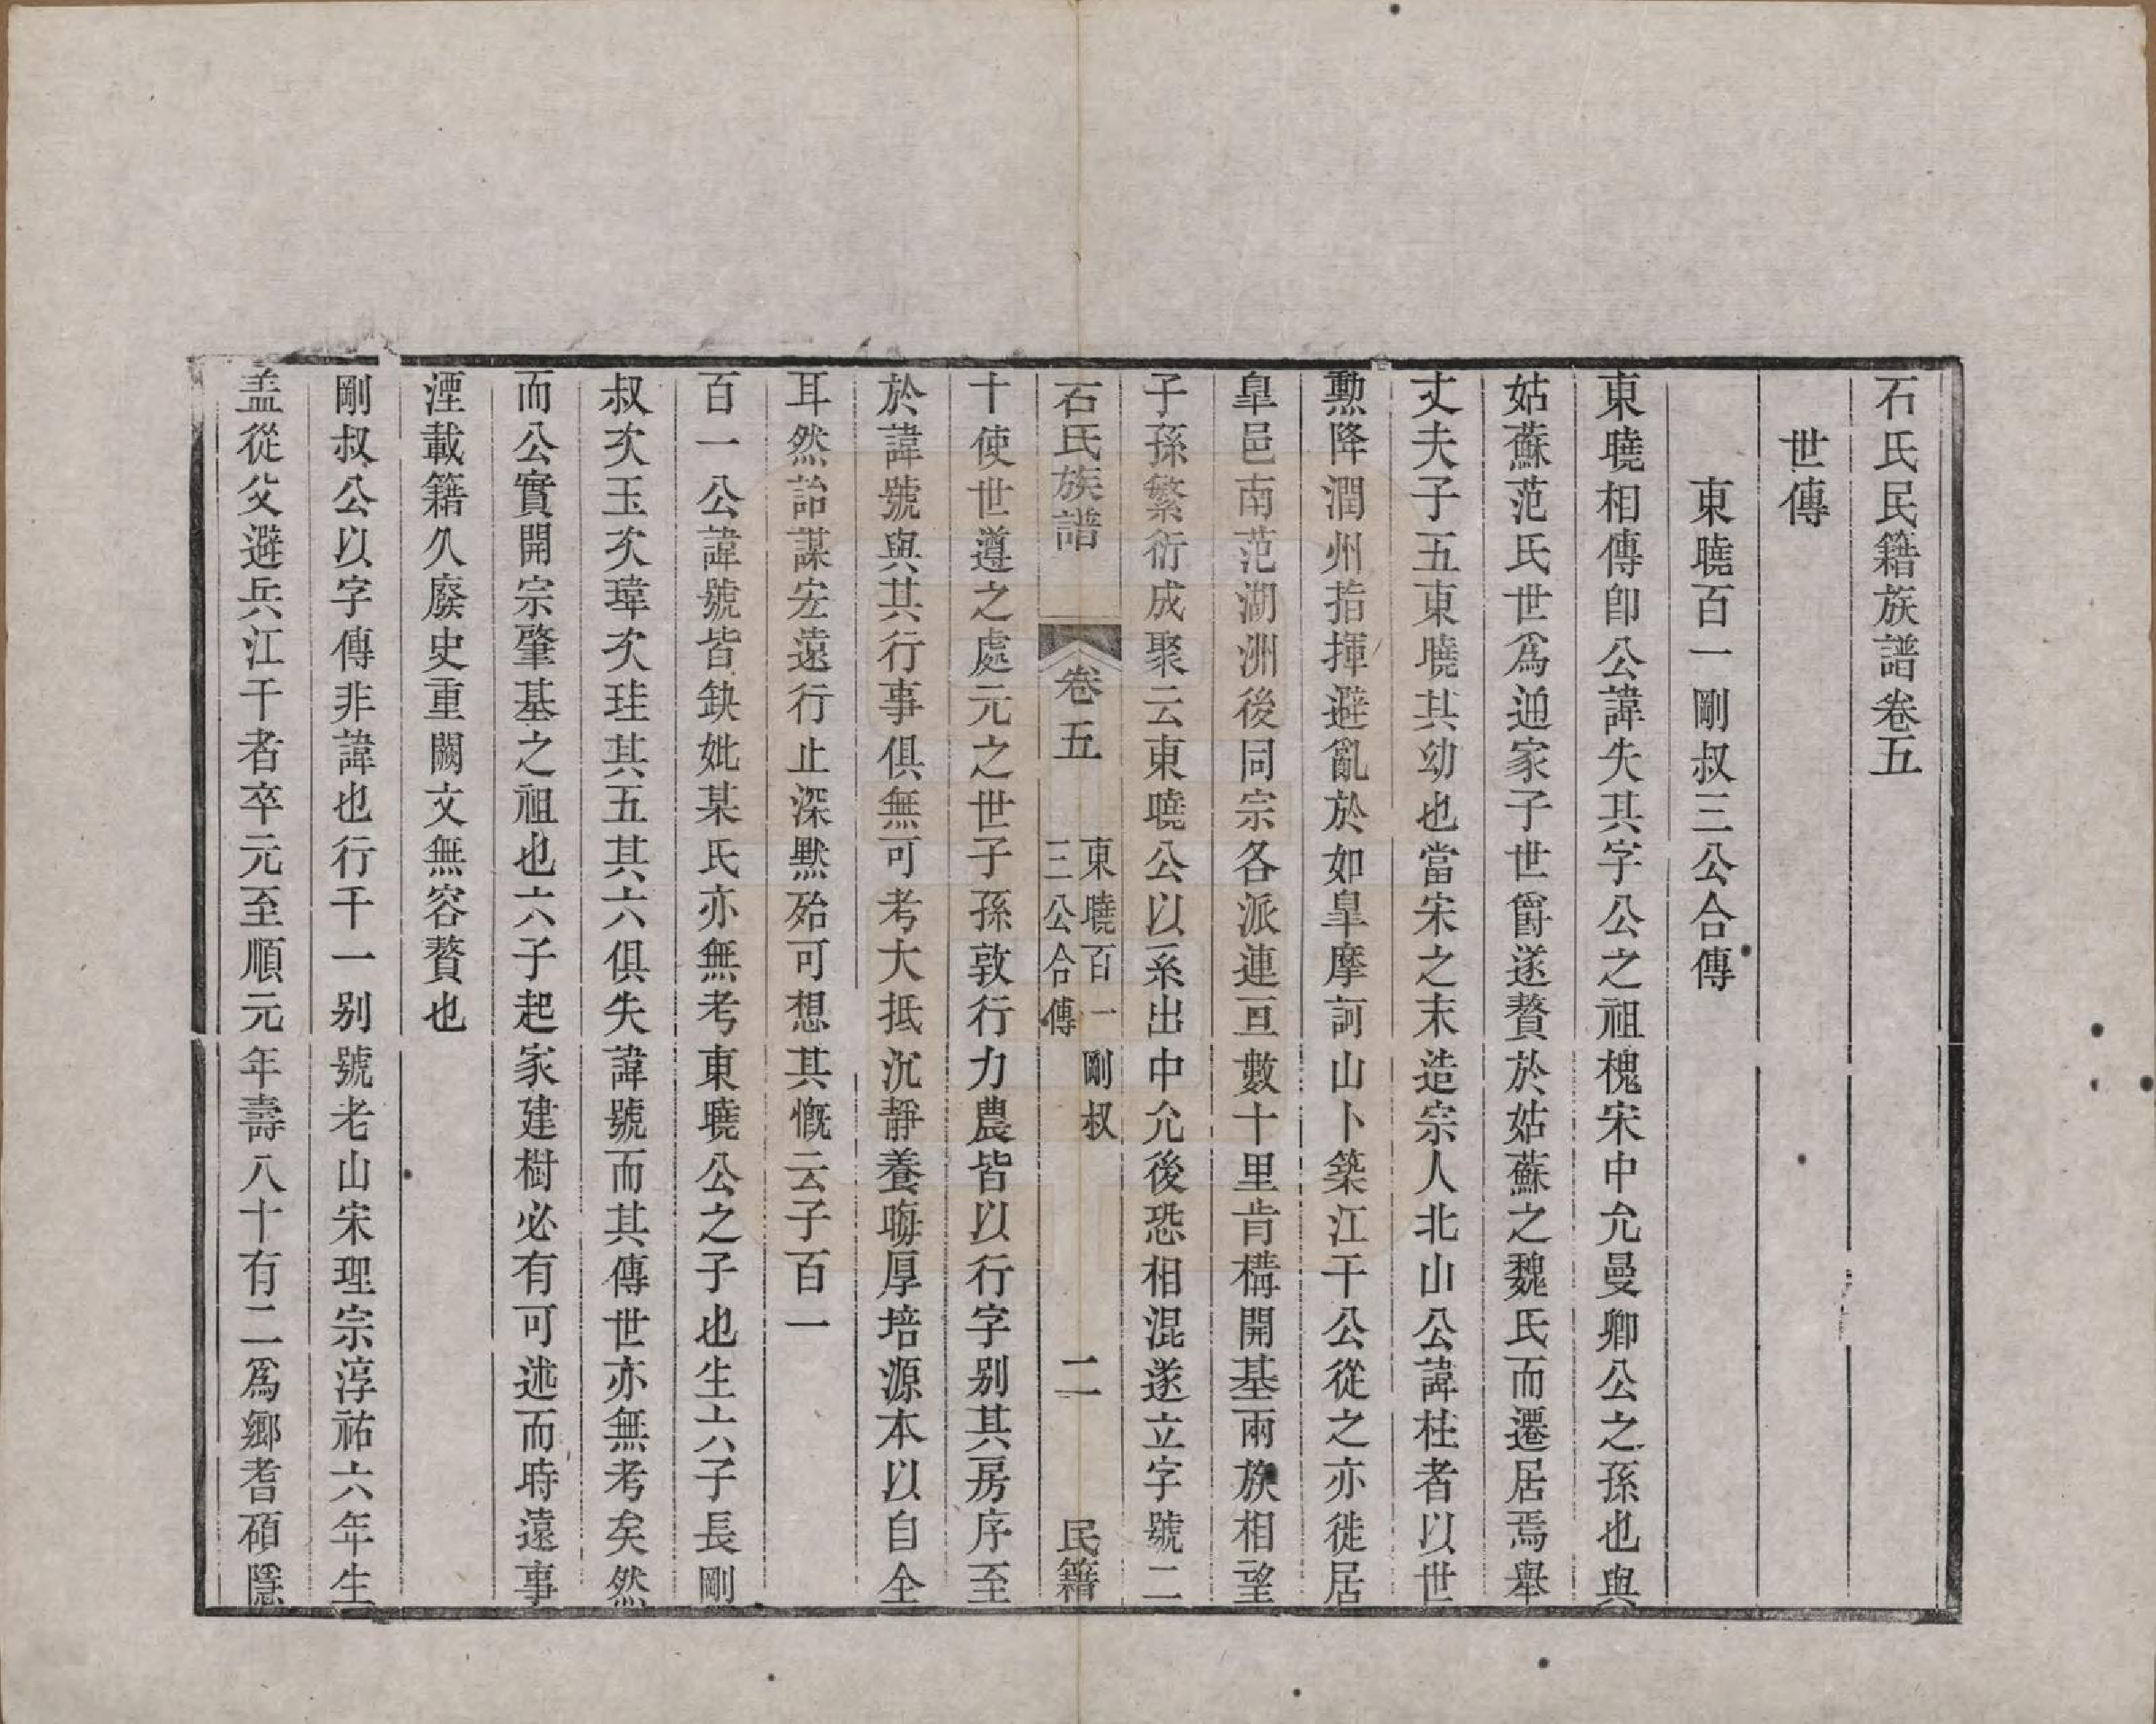 石氏民籍族譜卷五
世傳
東曉百一剛叔三公合傳
東曉相傳卽公諱失其字公之祖槐宋中允曼卿公之孫也與
姑蘇范氏世爲通家子世爵遂贅於姑蘇之魏氏而遷居焉舉
丈夫子五東曉其幼也當宋之末造宗人北山公諱柱者以世
勲降潤州指揮避亂於如臯摩訶山卜築江干公從之亦徙居
臯邑南范湖洲後同宗各派連亘數十里肯構開基兩族相望
子孫繁衍成聚云東曉公以系出中允後恐相混遂立字號二
石氏族譜 卷五 東曉百一剛叔三公合傳 二 民籍
十使世遵之處元之世子孫敦行力農皆以行字别其房序至
於諱號與其行事俱無可考大抵沉靜養晦厚培源本以自全
耳然詒謀宏遠行止深默殆可想其慨云子百一
百一公諱號皆缺妣某氏亦無考東曉公之子也生六子長剛
叔次玉次瑋次珪其五其六俱失諱號而其傳世亦無考矣然
而公實開宗肇基之祖也六子起家建樹必有可述而時遠事
湮載籍久廢史重闕文無容贅也
剛叔公以字傳非諱也行千一别號老山宋理宗淳祐六年生
盖從父避兵江干者卒元至順元年壽八十有二爲鄉耆碩隱